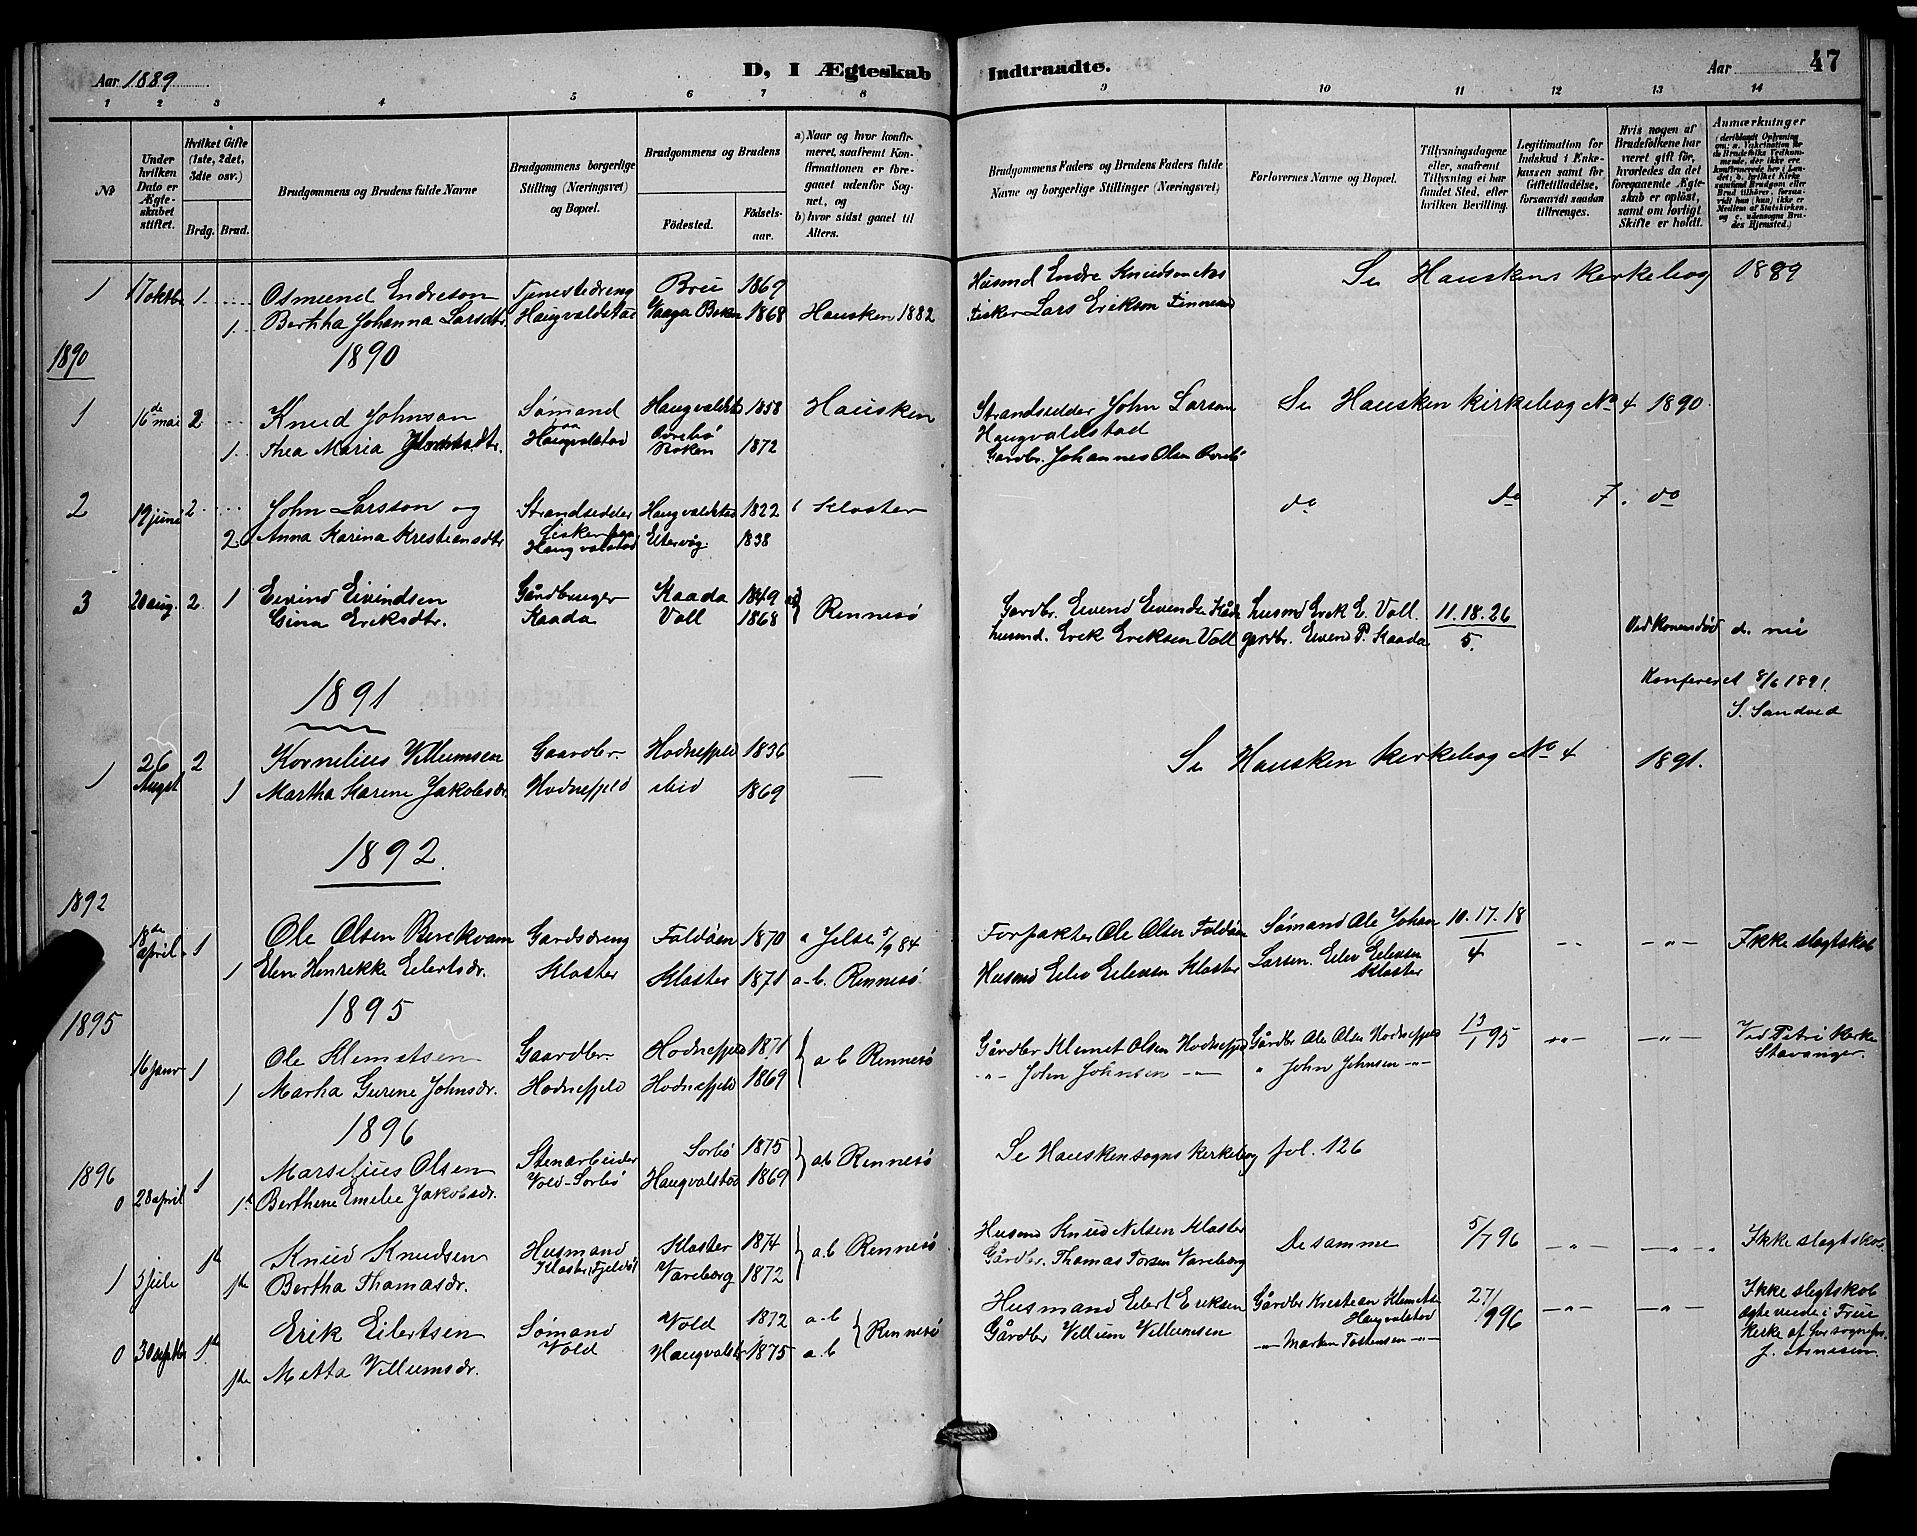 Aar 1889
D, I Ægteskab Indtraadte.
Aar
47
1 2 3 4 5 6 7 8 9 10 11 12 13 14
No
Under hvilken Dato er Ægteskabet stiftet.
Hvilket Gifte (1ste, 2det, 3die osv.)
Brdg. Brud.
Brudgommens og Brudens fulde Navne
Brudgommens borgerlige Stilling (Næringsvei) og Bopæl.
Brudgommens og Brudens
Fødested. Fødselsaar.
a) Naar og hvor konfirmeret, saafremt Konfirmationen er foregaaet udenfor Sognet, og
b) hvor sidst gaaet til Alters.
Brudgommens Faders og Brudens Faders fulde Navne og borgerlige Stillinger (Næringsvei)
Forlovernes Navne og Bopæl.
Tillysningsdagene eller, saafremt Tillysning ei har fundet Sted, efter hvilken Bevilling.
Legitimation for Indskud i Enkekassen samt for Giftetilladelse, forsaavidt saadan tiltrænges.
Hvis nogen af Brudefolkene har været gift før, hvorledes da det foregaaende Ægteskab er opløst, samt om lovligt Skifte er holdt.
Anmærkninger
1 17 oktbr 1 Osmund Endreson Tjenestedreng Brii 1869 Husmd Endre Knudson Se Hauskens Kirkebog 1889
1 Bertha Johanna Larsdtr Haugvaldstad Vaaga Boken 1868 Hausken 1882 Fisker Lars Erikson Finnesand
1890 1890
1 16de mai 2 Knud Johnson Sømand Haugvaldsta 1858 Hausken Strandsidder John Larson Se Hausken Kirkebog No 4 1890.
paa Haugvaldstad
1 Thea Maria Haugvalstad Boken 1872 Gardbr. Johannes Olsen
2 19 juni 2 John Larsson og Strandsidder Haugvaldstad 1822 Kloster do do 7. do
2 Anna Karina Kristiansdtr Fisker paa Haugvalstad Eltervåg. 1838
3 20 aug. 2 1 Eivind Eivindsen Gårdbruger Kaada 1849 Rennesø Gardbr. Eivend Husmd Erek E. Voll. 11. 18. 26
Gina Eriksdtr. Kaada Voll 1868 husmd. Erek Ereksen Voll gardbr. Eivend P. Kaada 5. Ved Konens død d. nei
1891 Konfereret 8/6 1891.
S. Sandved
1 26 August 2 Kornelius Villumsen Gaardbr. Hodnefjeld 1836 Se Hausken Kerkebog No 4 1891.
1 Martha Karene Jakobsdr. Hodnefjeld ibid 1869 —
1892.
1892
18de april 1 Ole Olsen Berekvam Gardsdreng Foldøen 1870 a Jelse 5/9 84 Forpakter Ole Olsen Foldøen Sømand Ole Johan 10. 17. 18 -"- -"- Ikke slegtskab
1 Elen Henrekke Eilertsdr. Kloster Kloster 1871 a-b. Rennesø Husmd Eilev Eilevsen Kloster Larsen. Eilev Eilevsen Kloster 4
1895 1895
16 janr 1 Ole Klemetsen Gaardbr. Hodnefjeld 1871 a b Rennesø Gårdbr Klemet Olsen Hodnefjeld Gårdbr Ole Olsen Hodnefjeld 13/1 95 -"- -"- Ved Petri Kerke
1 Martha Gurene Johnsdr. Hodnefjeld Hodnefjeld 1869 -"- John Johnsen -"- " John Johnsen -"- Stavanger.
1896
1896 0 28 april 1 Marselius Olsen Stenarbeider Sorbø 1875 a.b Rennesø Se Hauskensogns Kerkebog fol. 126
1t Berthene Emelie Jakobsdr. Vold-Sorbø Haugvalstad 1869
1 5 jule 1te Knud Knudsen Husmand Kloster 1874 a.b Rennesø Husmd Knud Nelsen Kloster De samme 5/7 96 -"- -"- Ikke slegtskab
1te Bertha Thomasdr. Kloster, Fjeldø Vareberg 1872 Gårdbr. Thomas Torsen Vareberg
0 30 septbr 1te Erik Eilertsen Sømand Vold 1872 a-b Rennesø Husmand Eilert Eriksen Gårdbr Krestean Klemetsen Haugvalstad 27/9 96 -"- -"- Ikke slegtskab
1te Metta Villumsdr. Vold Haugvalstd 1875 a.b Gårdbr Villum Villumsen -"- Morten Tostensen -"- egte viede i Frue Kerke af for sognepr. J. Arnesen